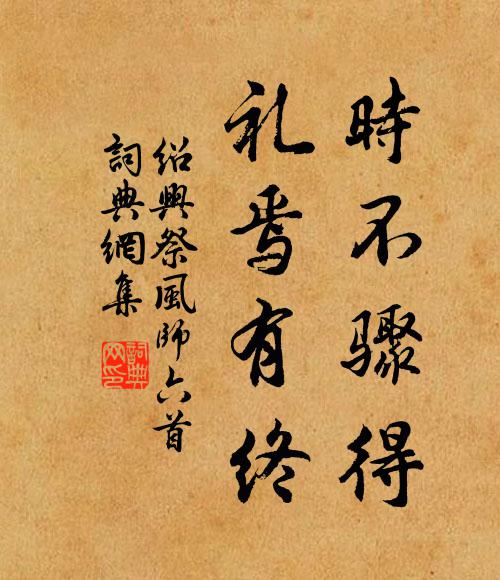 時不驟得
礼焉有終
紹興祭風師六首
詞典網集
詞典网印